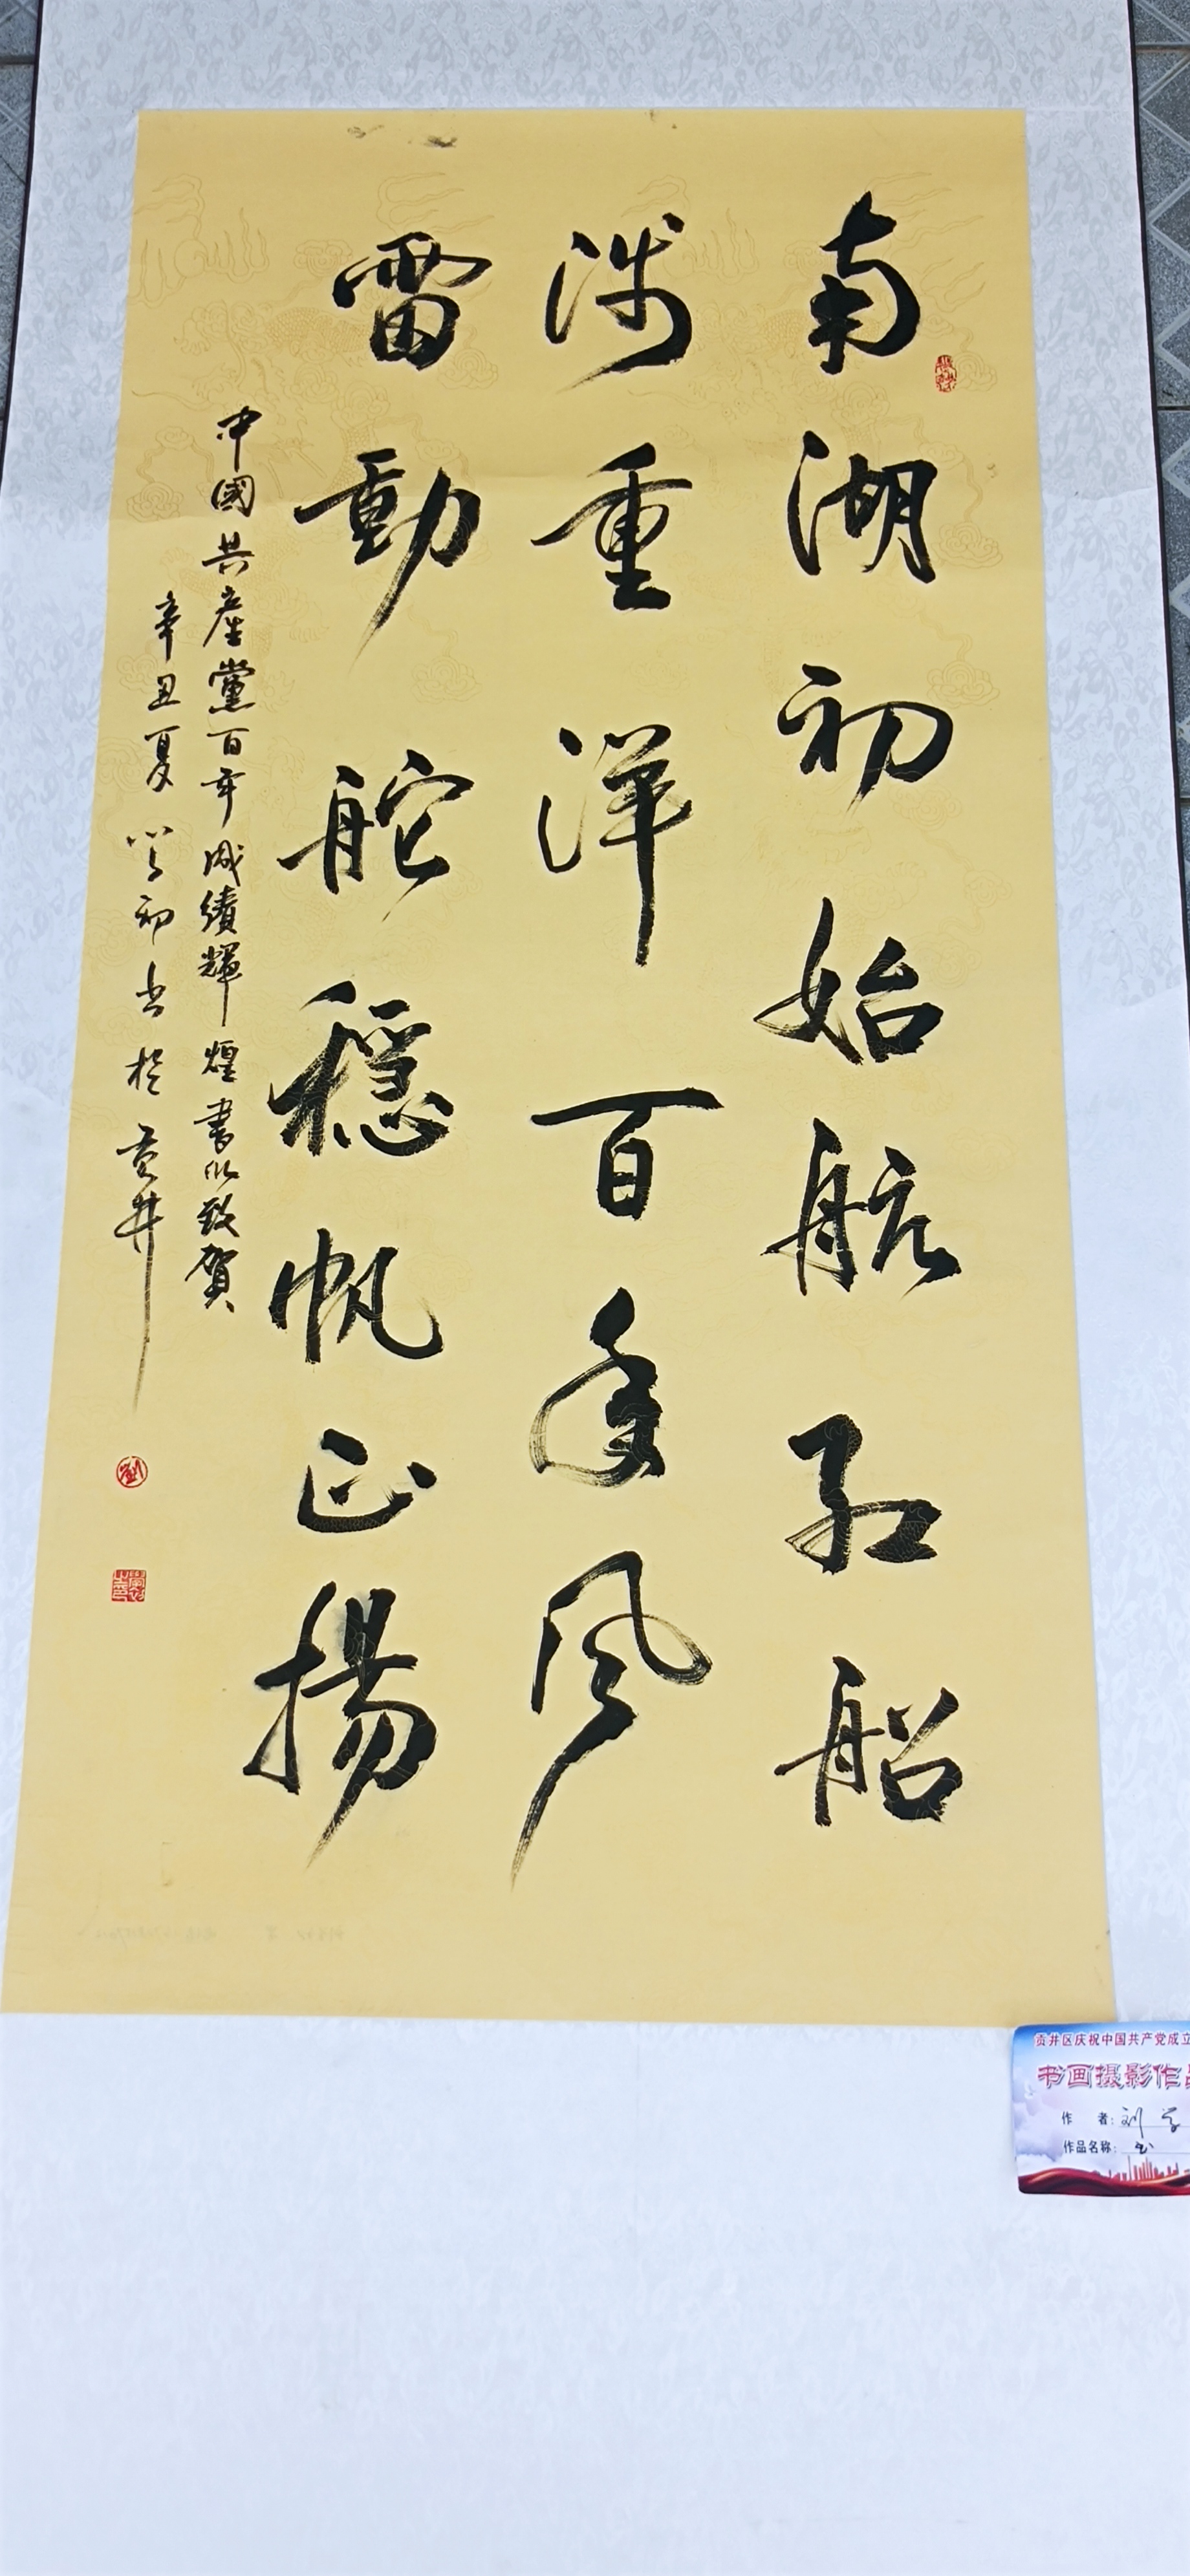 南湖初始航红船
涉重洋百年风
雷動舵穩帆正揚
中國共產黨百年成績輝煌書以致賀
辛丑夏学初书於贡井
贡井区庆祝中国共产党成立
书画摄影作品
作 者：刘学
作品名称：书